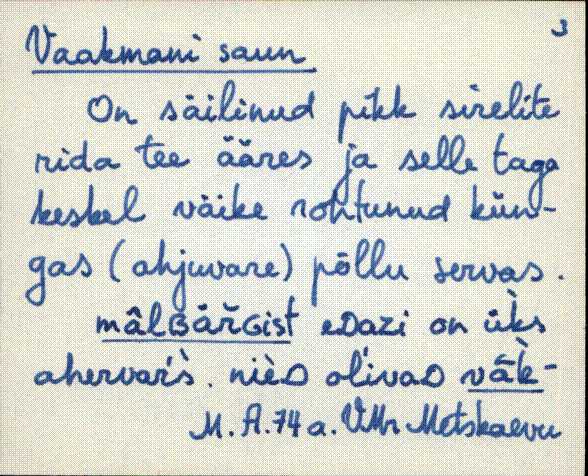 3
Vaakmani saun
On säilinud pikk sirelite
rida tee ääres ja selle taga
keskel väike rohtunud kün-
gas (ahjuvare) põllu servas.
mâlʙäřɢist eᴅazi on üks̀
ahervaŕs̀. nièᴅ olivaᴅ väk̀-
M. A. 74 a. VMr Metskaevu